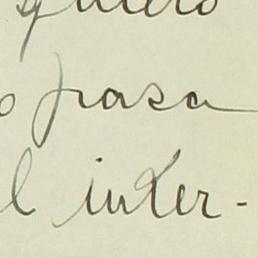 quiero
o pasa
l inter-